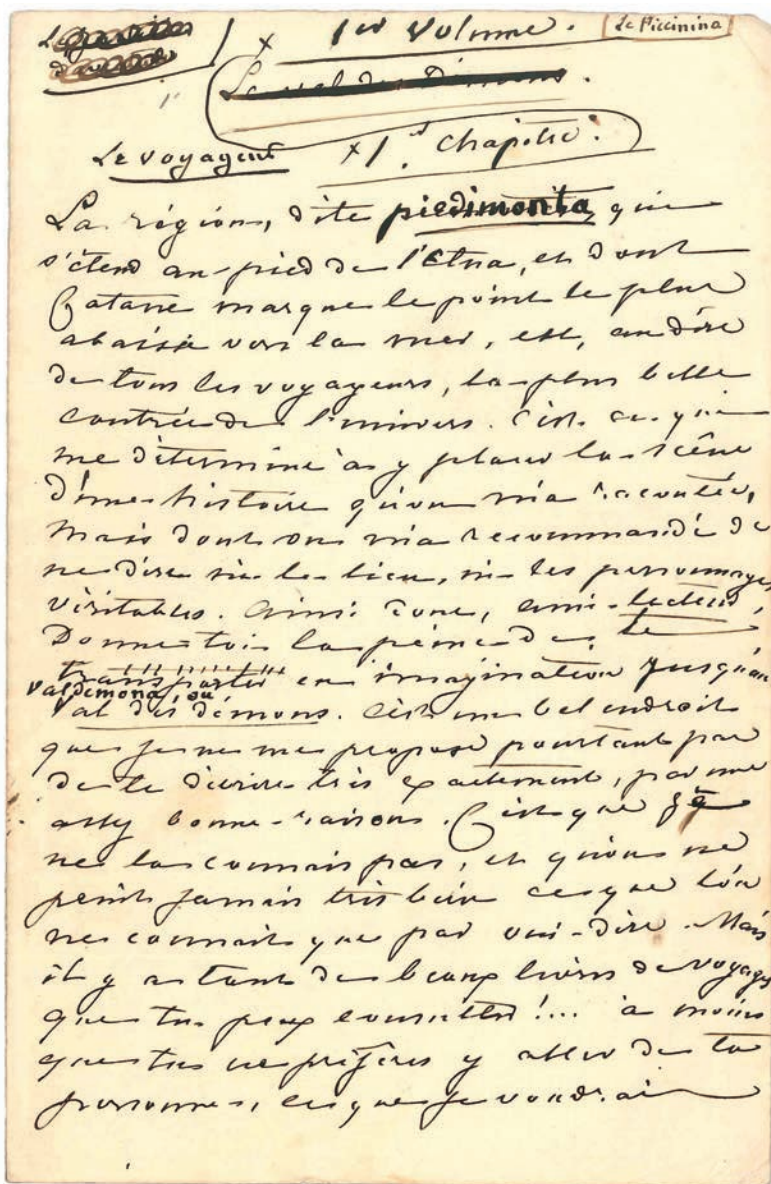 1er Volume.
Le Piccinina
Le val des Démons.
Le voyageur
1er chapitre.
La région, dite piedimonta, qui
s'étend au pied de l'Etna, et dont
Catane marque le point le plus
abaissé vers la mer, est, au dire
de tous les voyageurs, la plus belle
contrée de l'univers. C'est ce qui
me détermine à y placer la scène
d'une histoire qu'on m'a racontée,
mais dont on m'a recommandé de
ne dire ni le lieu, ni les personnages
véritables. Ainsi donc, ami lecteur,
Donne-toi la peine de te
transporter en imagination jusqu'au
Valdemona, ou
Val des démons. C'est un bel endroit
que je ne me propose pourtant pas
de te décrire très exactement, par une
assez bonne raison. C'est que je
ne la connais pas, et qu'on ne
peint jamais très bien ce que l'on
ne connait que par ouï-dire. Mais
il y a tant de beaux livres de voyages
que tu peux consulter!... à moins
que tu ne préfères y aller de ta
personne, ce que je voudrai